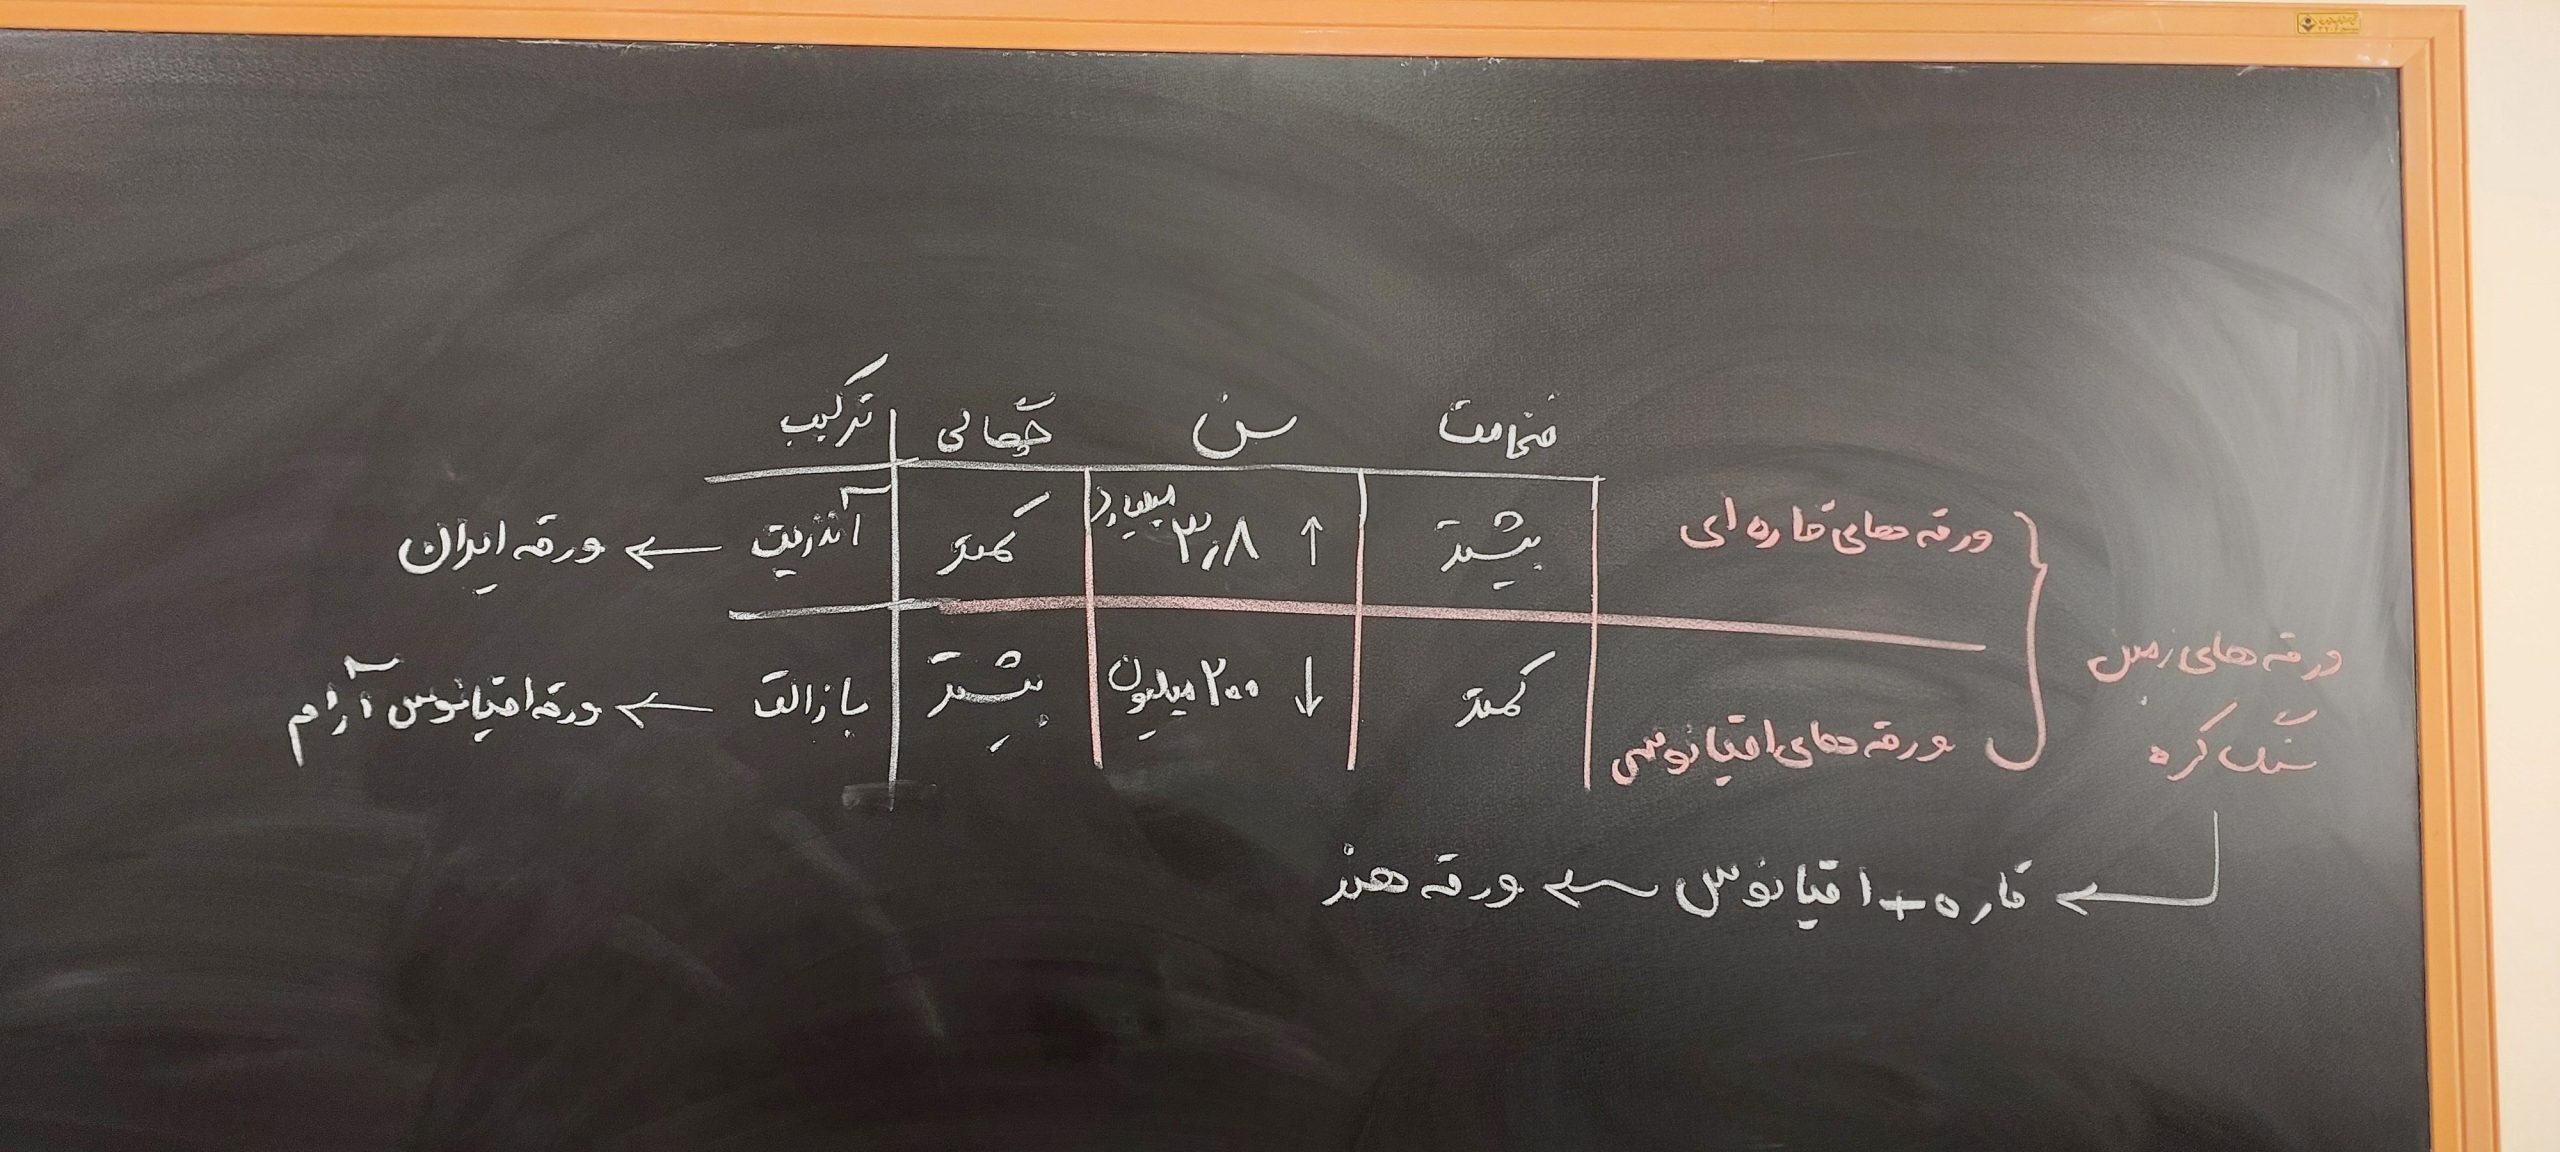 ضخامت سن چگالی ترکیب
ورقه های قاره ای بیشتر ↑ ۳٫۸ میلیارد کمتر آندزیت ← ورقه ایران
ورقه های زمین
سنگ کره
ورقه های اقیانوسی کمتر ↓ ۲۰۰ میلیون بیشتر بازالت ← ورقه اقیانوس آرام
← قاره + اقیانوس ← ورقه هند